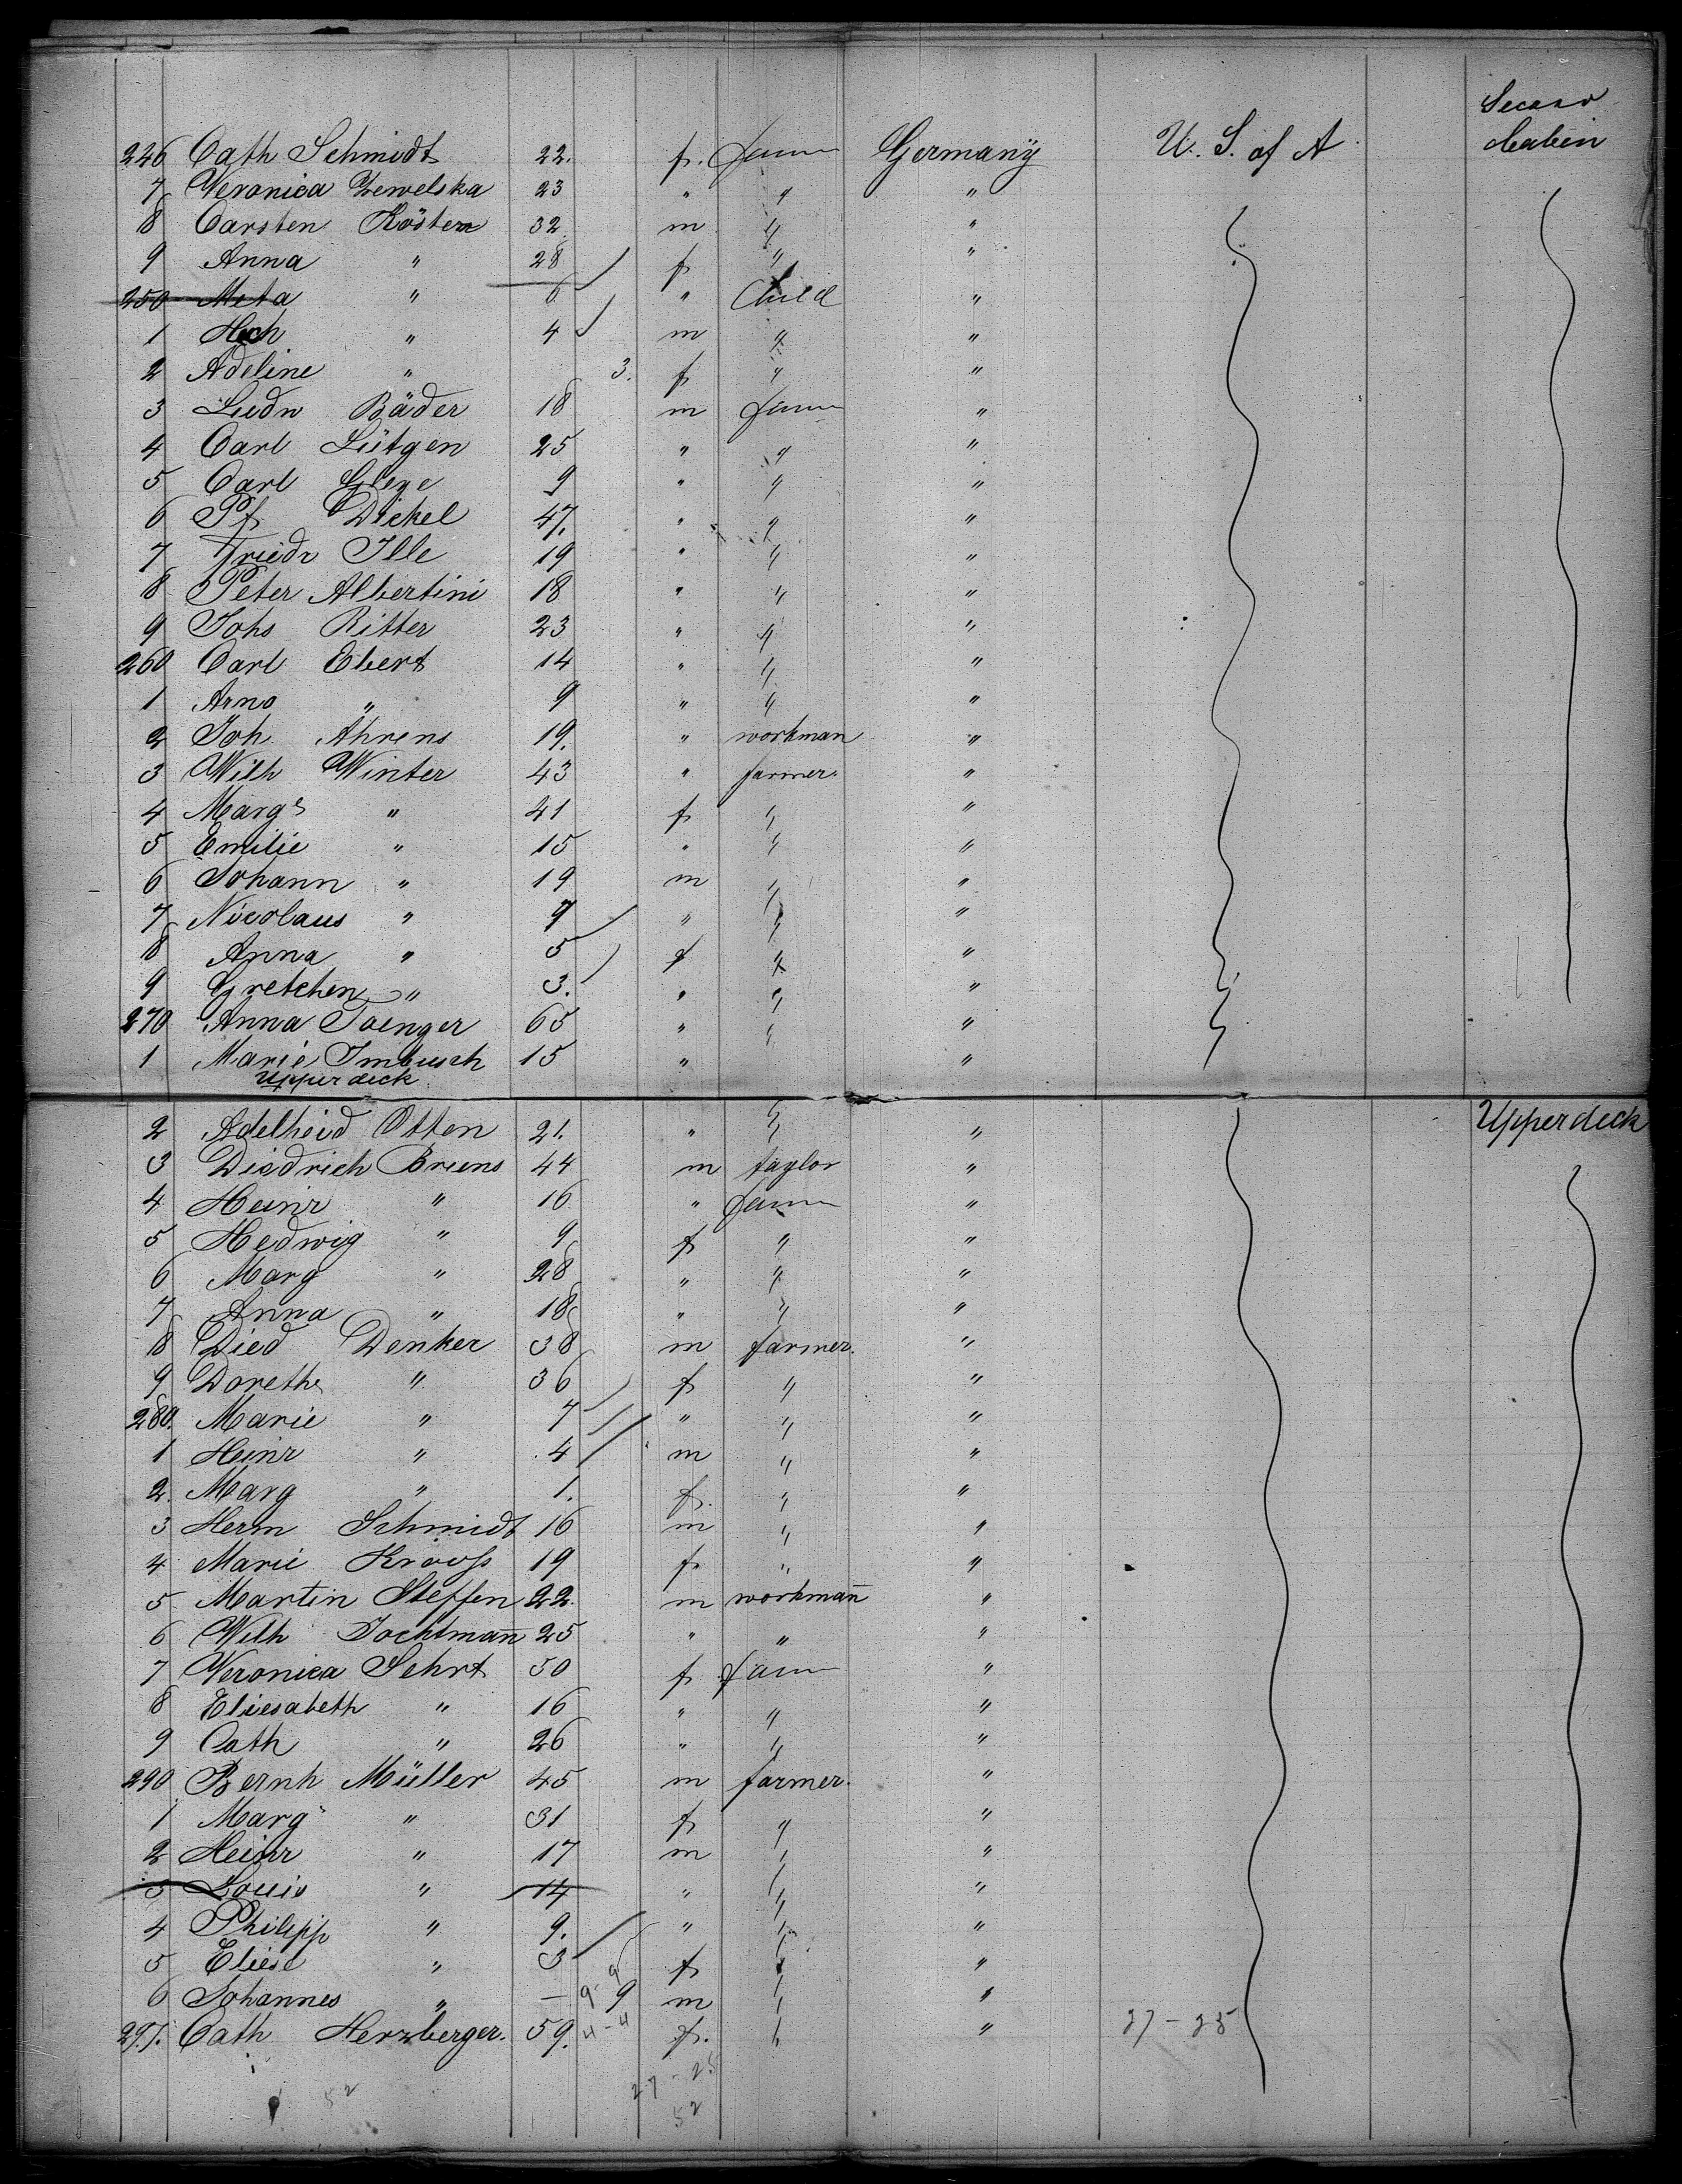 Second
Cabin
246 Cath Schmidt 22. f. Germany U. S. of A
7 Veronica Zewelska 23 " " "
8 Carsten Köster 32 m " "
9 Anna " 28 f " "
250 Meta " 6 " Child "
1 Hch " 4 m " "
2 Adeline " 3. f " "
3 Ludw Bäder 18 m "
4 Carl Lütgen 25 " " "
5 Carl Gleye 9 " " "
6 Dickel 47. " " "
7 Friedr Ille 19 " " "
8 Peter Albertini 18 " " "
9 Johs Ritter 23 " " "
260 Carl Ebert 14 " " "
1 Arno " 9 " " "
2 Joh. Ahrens 19. " workman "
3 Wilh Winter 43 " farmer. "
4 Marge " 41 f " "
5 Emilie " 15 " " "
6 Johann " 19 m " "
7 Nicolaus " 7 " " "
8 Anna " 5 f " "
9 Gretchen " 3. " " "
270 Anna Toenger 65 " " "
1 Marie Imbusch 15 " "
Upper deck
2 Adelheid Otten 21. " " " Upper deck
3 Diedrich Bruns 44 m taylor "
4 Heinr " 16 " "
5 Hedwig " 9 f " "
6 Marg " 28 " " "
7 Anna " 18 " " "
8 Died Denker 38 m farmer. "
9 Dorethe " 36 f " "
280. Marie " 7 " " "
1 Heinr " 4 m " "
2. Marg " 1. f. " "
3 Herm Schmidt 16 m " "
4 Marie 19 f. " "
5 Martin Steffen 22. m workman̄ "
6 Wilh Jochtman̄ 25 " " "
7 Veronica Sehrt 50 f "
8 Eliesabeth " 16 " " "
9 Cath " 26 " " "
290 Bernh Müller 45 m farmer. "
1 Marg " 31 f " "
2 Heinr " 17 m " "
3 Louis " 14 " " "
4 Philipp " 9. " " "
5 Eliese " 3 f " "
6 Johannes " — 9 m " "
297. Cath Herzberger. 59. 4-4 f. " " 27-25
52 27-25
52